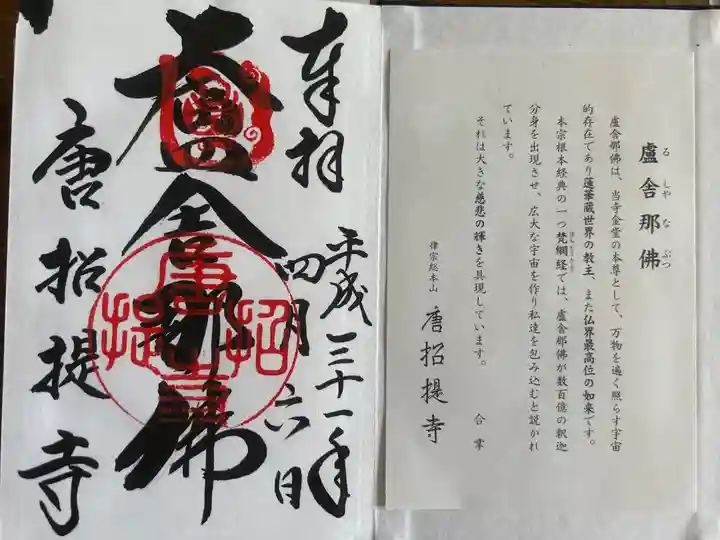 奉拝
平成三十一年
四月六日
盧舍那佛
唐招提寺
唐招提寺
盧舍那佛
るしゃなぶつ
盧舍那佛は、当寺金堂の本尊として、万物を遍く照らす宇宙
的存在であり蓮華蔵世界の教主、また仏界最高位の如来です。
本宗根本経典の一つ梵網経では、盧舍那佛が数百億の釈迦
ぼんもうきょう
分身を出現させ、広大な宇宙を作り私達を包み込むと説かれ
ています。
それは大きな慈悲の輝きを具現しています。
合掌
律宗総本山
唐招提寺